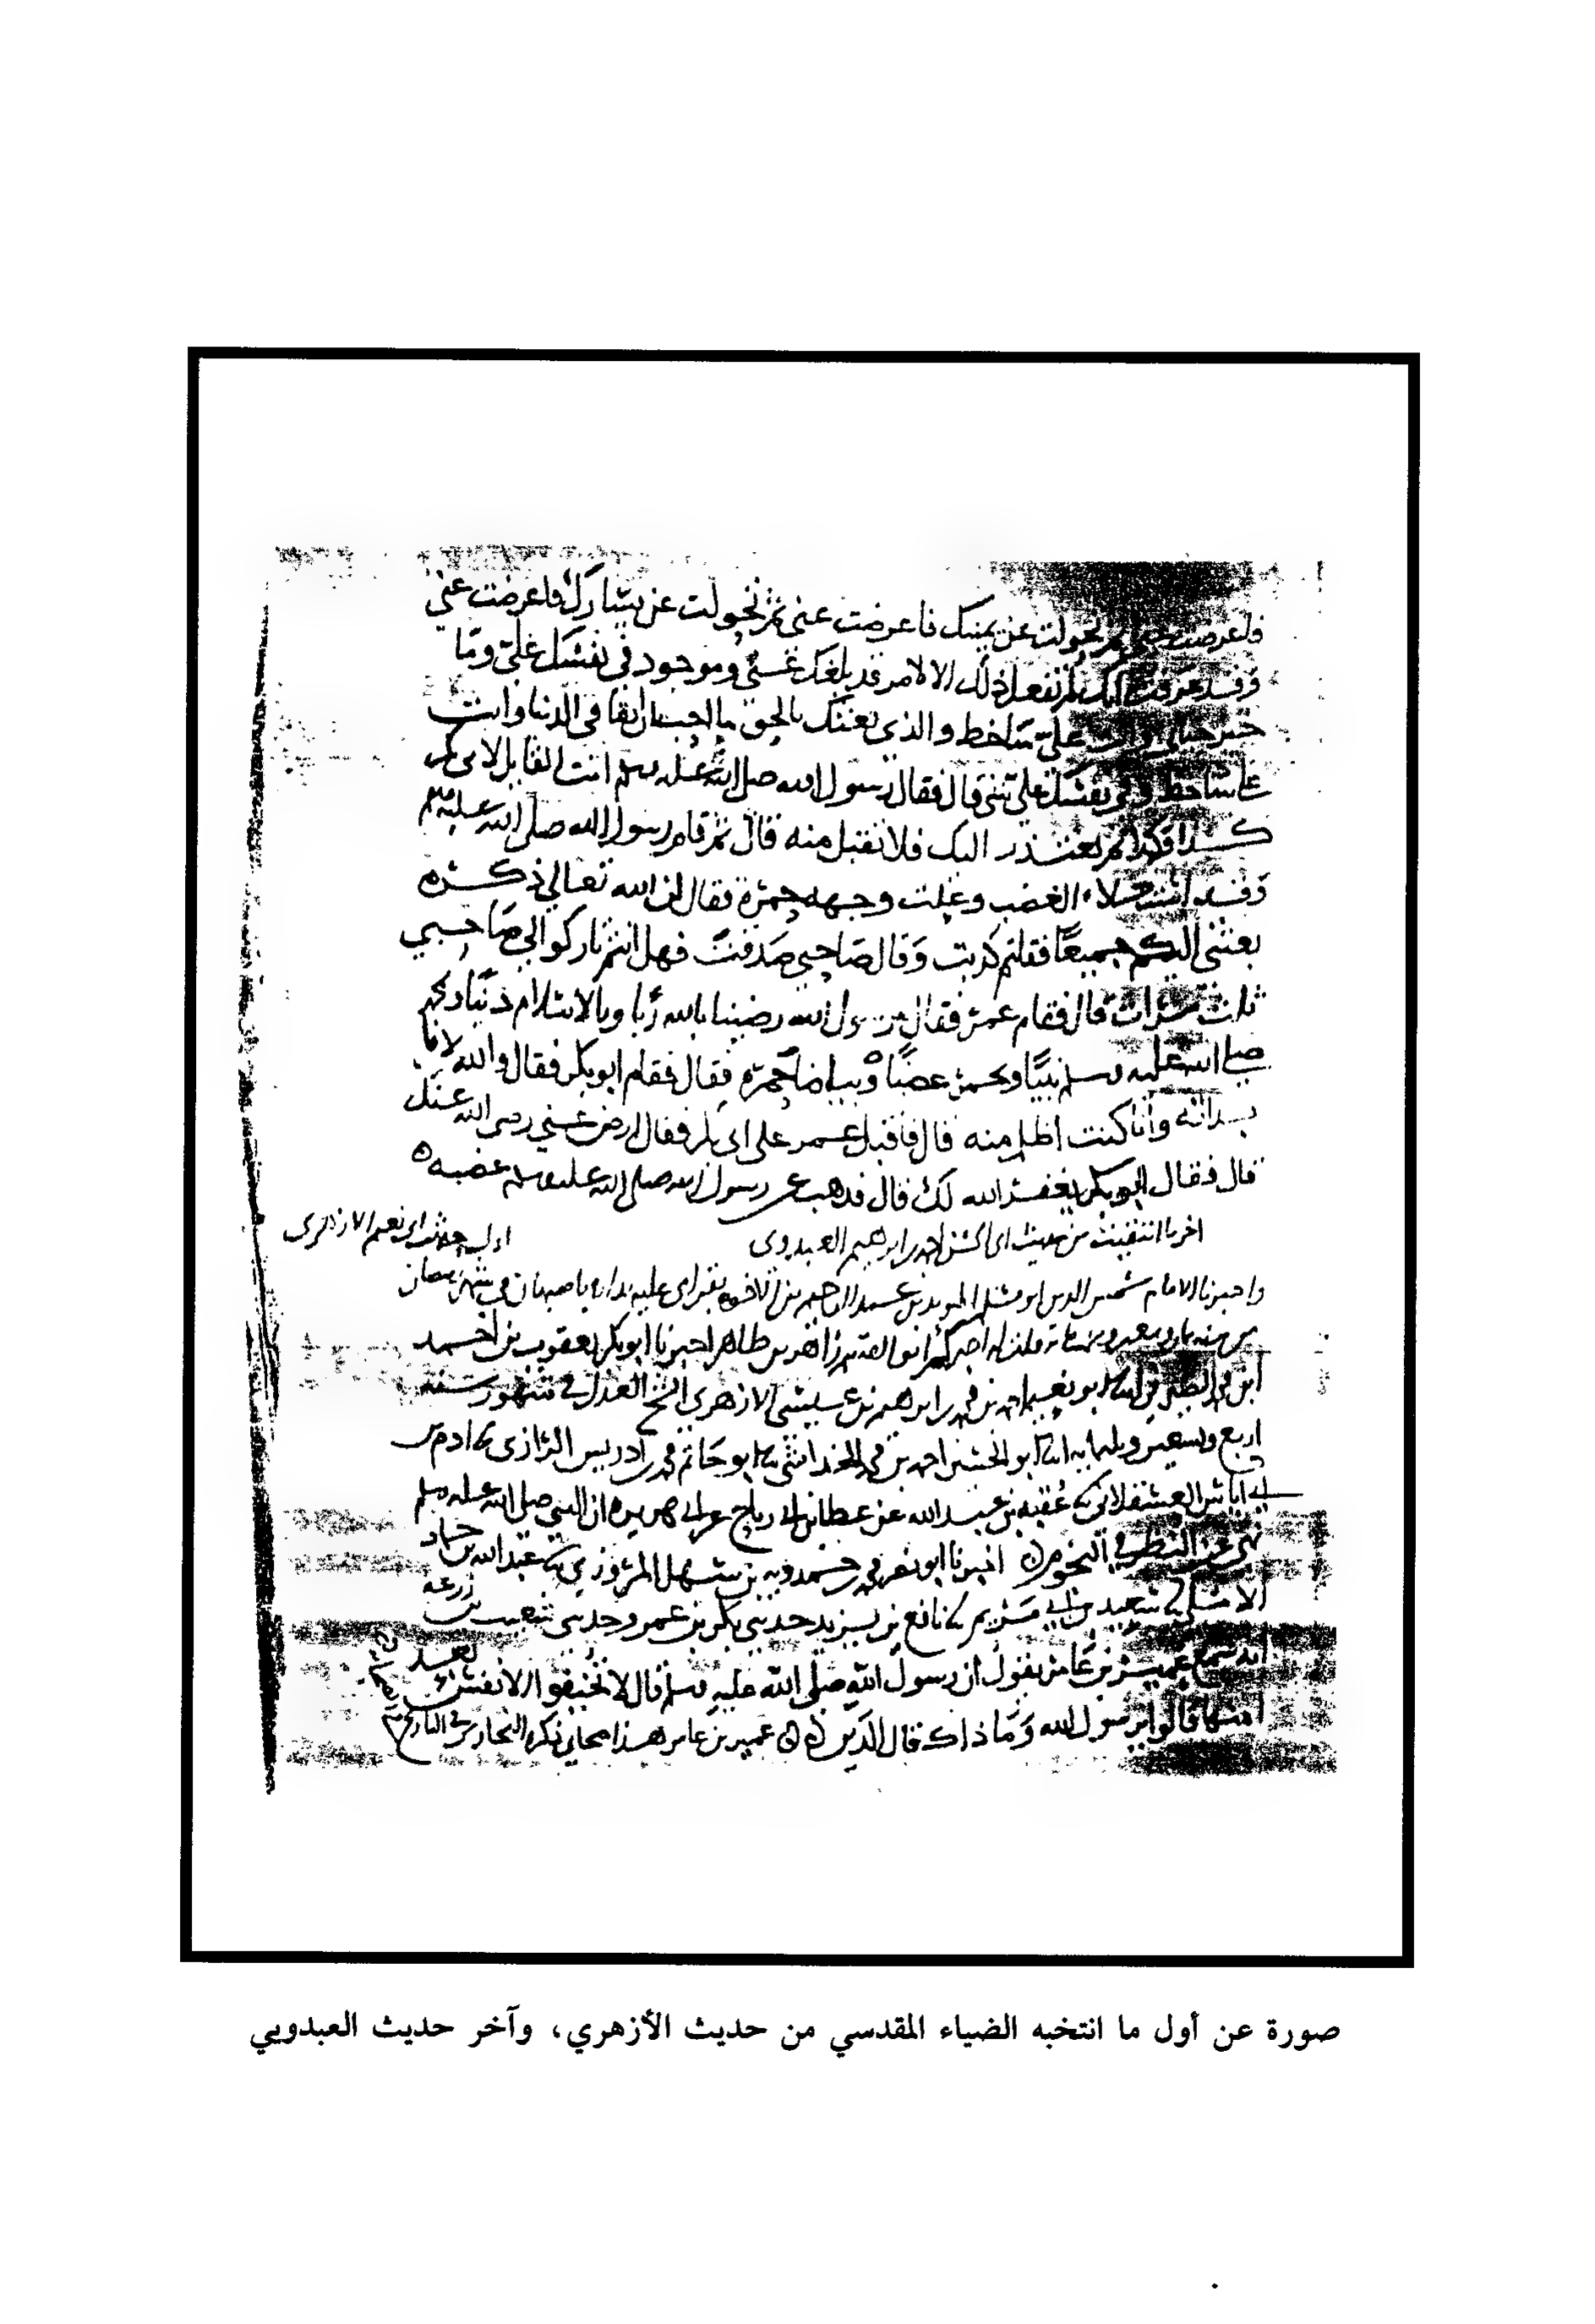 فاعرضت عني ثم تحولت عن يمينك فاعرضت عني ثم تحولت عن يسارك فاعرضت عني
وقد عرفت انك لم تفعل ذلك الا لامر قد بلغك عني وموجود في نفسك علي وما
خير حياتي وانت علي ساخط والذي بعثك بالحق ما احب ان ابقا في الدنيا وانت
علي ساخط وفي نفسك علي شي قال فقال رسول الله صلى الله عليه وسلم انت القايل لابي بكر
كذا وكذا ثم يعتذر اليك فلا تقبل منه قال ثم قام رسول الله صلى الله عليه وسلم
وقد امتلاء الغضب وعلت وجهه حمرة فقال ان الله تعالى ذكره
بعثني اليكم جميعا فقلتم كذبت وقال صاحبي صدقت فهل انتم تاركوا لي صاحبي
ثلاث مرات قال فقام عمر فقال يرسول الله رضينا بالله ربا وبالاسلام دينا وبمحمد
صلى الله عليه وسلم نبيا فقال فقام ابو بكر فقال والله لانا
بدانه وانا كنت اظلم منه قال فاقبل عمر على ابي بكر فقال ارض عني رضي الله عنك
قال فقال ابو بكر يغفر الله لك قال فذهب عن رسول الله صلى الله عليه وسلم غضبه
اخر ما انتقيت من حديث ابي الحسن احمد بن ابرهيم العبدوي
اول حديث ابي نعيم الازهري
واخبرنا الامام شمس الدين ابو مسلم المويد بن عبد الرحيم بن الاخوة بقراتي عليه بداره باصبهان في شهر رمضان
قلت له اخبركم ابو القسم زاهر بن طاهر اخبرنا ابو بكر يعقوب بن احمد
ابن محمد الصيرفي انا ابو نعيم احمد بن محمد بن ابرهيم بن عيسى الازهري الشيخ العدل في شهور سنة
اربع وتسعين وثلثمايه انا ابو الحسن احمد بن محمد المخلدي ثنا ابو حاتم محمد بن ادريس الرازي ثنا ادم بن
ابي اياس العسقلاني ثنا عقبه بن عبد الله عن عطا بن ابي رباح عن ابي هريره ان النبي صلى الله عليه وسلم
نهى عن النظر في النجوم اخبرنا ابو نصر محمد بن حمدويه بن سهل المروزي ثنا عبد الله بن حماد
الاملي ثنا سعيد بن ابي مريم ثنا نافع بن يزيد حدثني بكر بن عمرو حدثني شعيب بن زرعه
انه سمع عمير بن عامر يقول ان رسول الله صلى الله عليه وسلم قال لا تخيفوا الانفس بعد
امنها قالوا يرسول الله وما ذاك قال الدين عمير بن عامر هذا صحابي ذكره البخاري في التاريخ
صورة عن أول ما انتخبه الضياء المقدسي من حديث الأزهري، وآخر حديث العبدويي